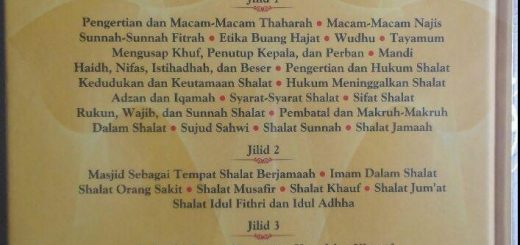 Jilid 1
Pengertian dan Macam-Macam Thaharah • Macam-Macam Najis
Sunnah-Sunnah Fitrah • Etika Buang Hajat • Wudhu • Tayamum
Mengusap Khuf, Penutup Kepala, dan Perban • Mandi
Haidh, Nifas, Istihadhah, dan Beser • Pengertian dan Hukum Shalat
Kedudukan dan Keutamaan Shalat • Hukum Meninggalkan Shalat
Adzan dan Iqamah • Syarat-Syarat Shalat • Sifat Shalat
Rukun, Wajib, dan Sunnah Shalat • Pembatal dan Makruh-Makruh
Dalam Shalat • Sujud Sahwi • Shalat Sunnah • Shalat Jamaah
Jilid 2
Masjid Sebagai Tempat Shalat Berjamaah • Imam Dalam Shalat
Shalat Orang Sakit • Shalat Musafir • Shalat Khauf • Shalat Jum'at
Shalat Idul Fithri dan Idul Adhha
Jilid 3